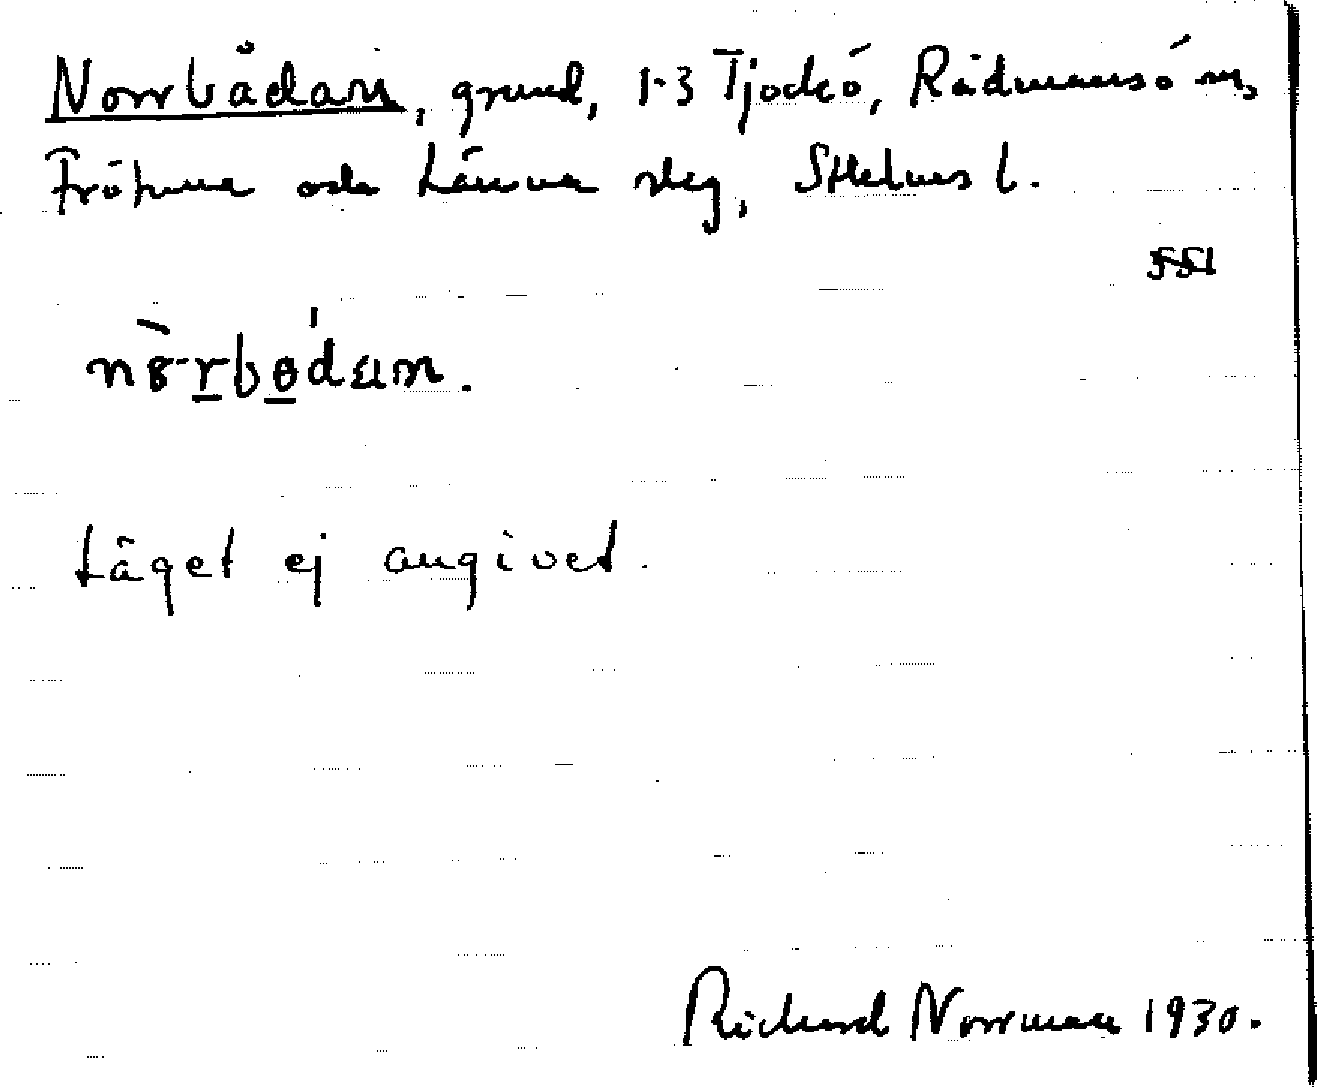 Norrbådan, grund, 1-3 Tjockö, Rådmansö sn,
Fröhuna och Länna skg, Sthlms l.
551
Läget ej angivet.
Richard Norrman 1930.